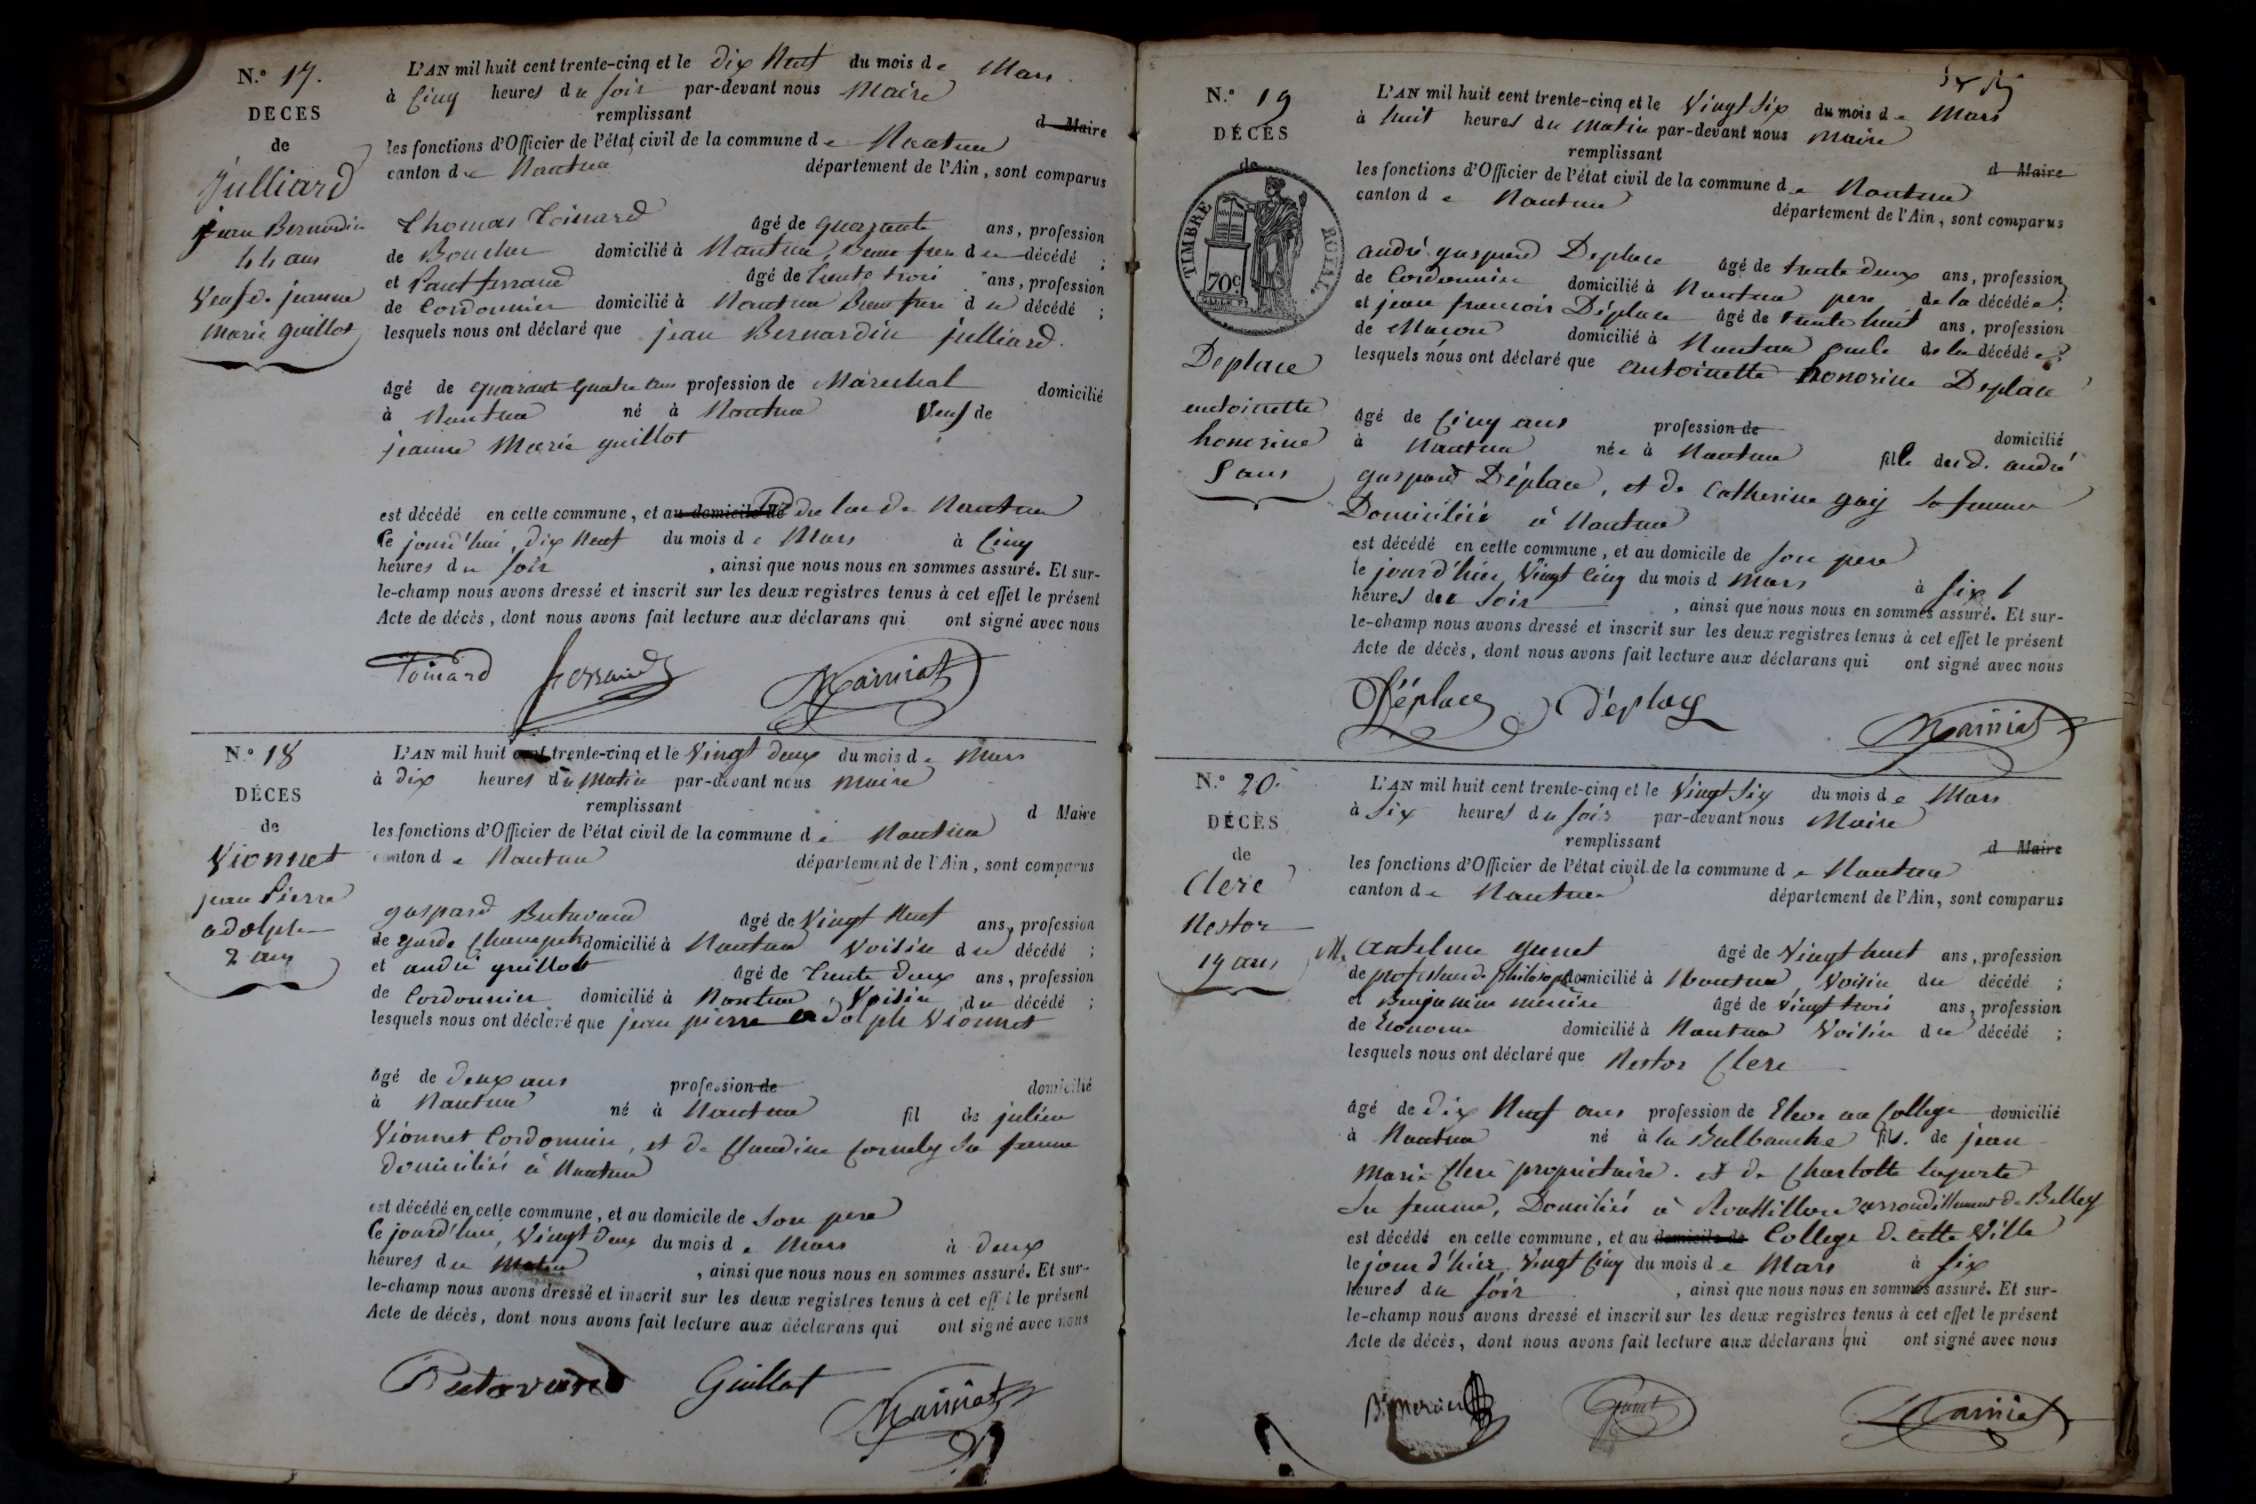 N.º 17.
DECES
de
Julliard
jean Bernardin
44 ans
Veuf de jeanne
Marie guillot
L'AN mil huit cent trente-cinq et le dix Neuf du mois de Mars
à Cinq heures du soir par-devant nous Maire
remplissant d Maire
les fonctions d'Officier de l'état civil de la commune de Nantua
canton de Nantua département de l'Ain, sont comparus
Thomas Toinard âgé de quarante ans, profession
de Boucher domicilié à Nantua, Beau frere du décédé ;
et ferrand âgé de trente trois ans, profession
de Cordonnier domicilié à Nantua Beau frere du décédé ;
lesquels nous ont déclaré que jean Bernardin julliard.
âgé de quarante quatre ans profession de Maréchal domicilié
à Nantua né à Nantua Veuf de
jeanne Marie guillot
est décédé en cette commune, et au domicile de du lac de Nantua
Ce jourd'hui, dix Neuf du mois de Mars à Cinq
heures du soir , ainsi que nous nous en sommes assuré. Et sur-
le-champ nous avons dressé et inscrit sur les deux registres tenus à cet effet le présent
Acte de décès, dont nous avons fait lecture aux déclarans qui ont signé avec nous
Toinard ferrand
N.º 18
DÉCES
de
Vionnet
jean Pierre
adolphe
2 ans
L'AN mil huit cent trente-cinq et le Vingt deux du mois de Mars
à dix heures du Matin par-devant nous Maire
remplissant d Maire
les fonctions d'Officier de l'état civil de la commune de Nantua
canton de Nantua département de l'Ain, sont comparus
gaspard Butavand âgé de Vingt Neuf ans, profession
de garde Champetre domicilié à Nantua Voisin du décédé ;
et andré guillot âgé de Trente Deux ans, profession
de Cordonnier domicilié à Nantua, Voisin du décédé ;
lesquels nous ont déclaré que jean pierre adolph Vionnet
âgé de deux ans profession de domicilié
à Nantua né à Nantua fil de julien
Vionnet Cordonnier, et de Claudine Cornely sa femme
domiciliés à Nantua
est décédé en cette commune, et au domicile de son pere
Ce jourd'hui, Vingt deux du mois de Mars à deux
heures du Matin , ainsi que nous nous en sommes assuré. Et sur-
le-champ nous avons dressé et inscrit sur les deux registres tenus à cet effet le présent
Acte de décès, dont nous avons fait lecture aux déclarans qui ont signé avec nous
Butavand Guillot
N.º 19
DÉCÈS
de
TIMBRE ROYAL
70c
Deplace
antoinette
honorine
5 ans
L'AN mil huit cent trente-cinq et le Vingt Six du mois de Mars
à huit heures du Matin par-devant nous Maire
remplissant d Maire
les fonctions d'Officier de l'état civil de la commune de Nantua
canton de Nantua département de l'Ain, sont comparus
andré gaspard Deplace âgé de trente deux ans, profession
de Cordonnier domicilié à Nantua pere de la décédée ;
et jean francois Déplace âgé de trente huit ans, profession
de Maçon domicilié à Nantua oncle de la décédée ;
lesquels nous ont déclaré que antoinette honorine Deplace
âgé de Cinq ans profession de domicilié
à Nantua née à Nantua fille de andré
gaspard Déplace, et de Catherine gay sa femme
Domiciliés à Nantua
est décédé en cette commune, et au domicile de son pere
le jourd'hier Vingt Cinq du mois d Mars à six
heures du soir , ainsi que nous nous en sommes assuré. Et sur-
le-champ nous avons dressé et inscrit sur les deux registres tenus à cet effet le présent
Acte de décès, dont nous avons fait lecture aux déclarans qui ont signé avec nous
Déplace Déplace
N.º 20.
DÉCÈS
de
Clerc
Nestor
19 ans
L'AN mil huit cent trente-cinq et le Vingt Six du mois de Mars
à Six heures du soir par-devant nous Maire
remplissant d Maire
les fonctions d'Officier de l'état civil de la commune de Nantua
canton de Nantua département de l'Ain, sont comparus
M. Antelme gunet âgé de Vingt huit ans, profession
de professeur de philosophie domicilié à Nantua, Voisin du décédé ;
et Benjamin mercier âgé de vingt trois ans, profession
de Econome domicilié à Nantua Voisin du décédé ;
lesquels nous ont déclaré que Nestor Clerc
âgé de dix Neuf ans profession de Eleve au College domicilié
à Nantua né à la Balbanche fils de jean
Marie Clerc propriétaire. et de Charlotte laporte
sa femme, Domiciliés à Rossillon arrondissement de Belley
est décédé en cette commune, et au domicile de College de cette Ville
le jourd'hier Vingt Cinq du mois de Mars à six
heures du soir , ainsi que nous nous en sommes assuré. Et sur-
le-champ nous avons dressé et inscrit sur les deux registres tenus à cet effet le présent
Acte de décès, dont nous avons fait lecture aux déclarans qui ont signé avec nous
Bin mercier